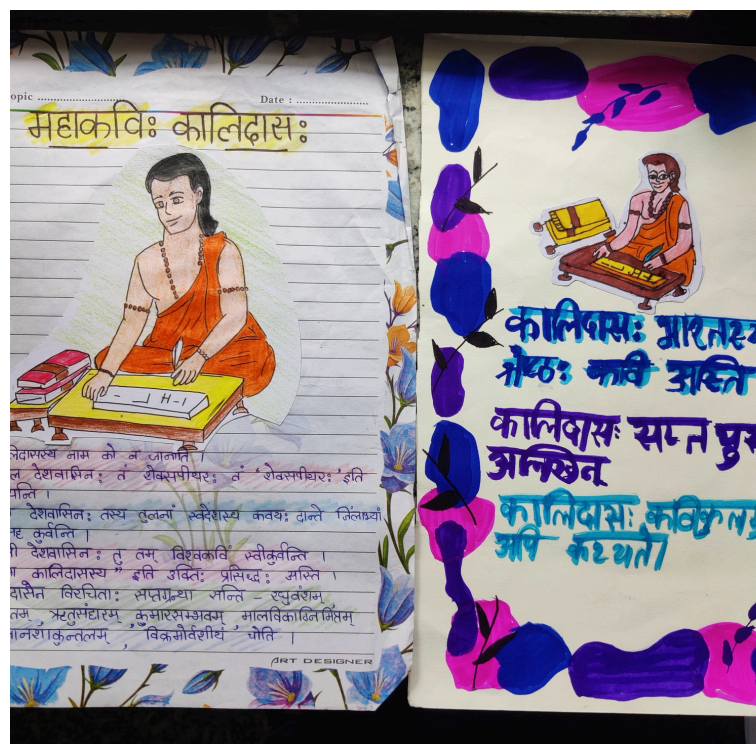 opic
Date :
महाकविः कालिदासः
लिदासस्य नाम को न जानाति ।
ल देशवासिनः तं शेक्सपीयरः तं 'शेक्सपीयरः' इति
यन्ति ।
देशवासिनः तस्य तुलनां स्वदेशस्य कवयः दान्ते
कुर्वन्ति ।
देशवासिनः तु तम् विश्वकविं स्वीकुर्वन्ति ।
कालिदासस्य" इति उक्तिः प्रसिध्दः अस्ति ।
दासेन विरचिताः सप्तग्रन्था सन्ति - रघुवंशम्
तम् ऋतुसंहारम्, कुमारसम्भवम्, मालविकाग्निमित्रम्
ज्ञानशाकुन्तलम्, विक्रमोर्वशीयं चेति ।
ART DESIGNER
कालिदासः भारतस्य
श्रेष्ठः कवि अस्ति
कालिदासः सप्त
अलिखत्
कालिदासः कविकुल
अपि कथ्यते।